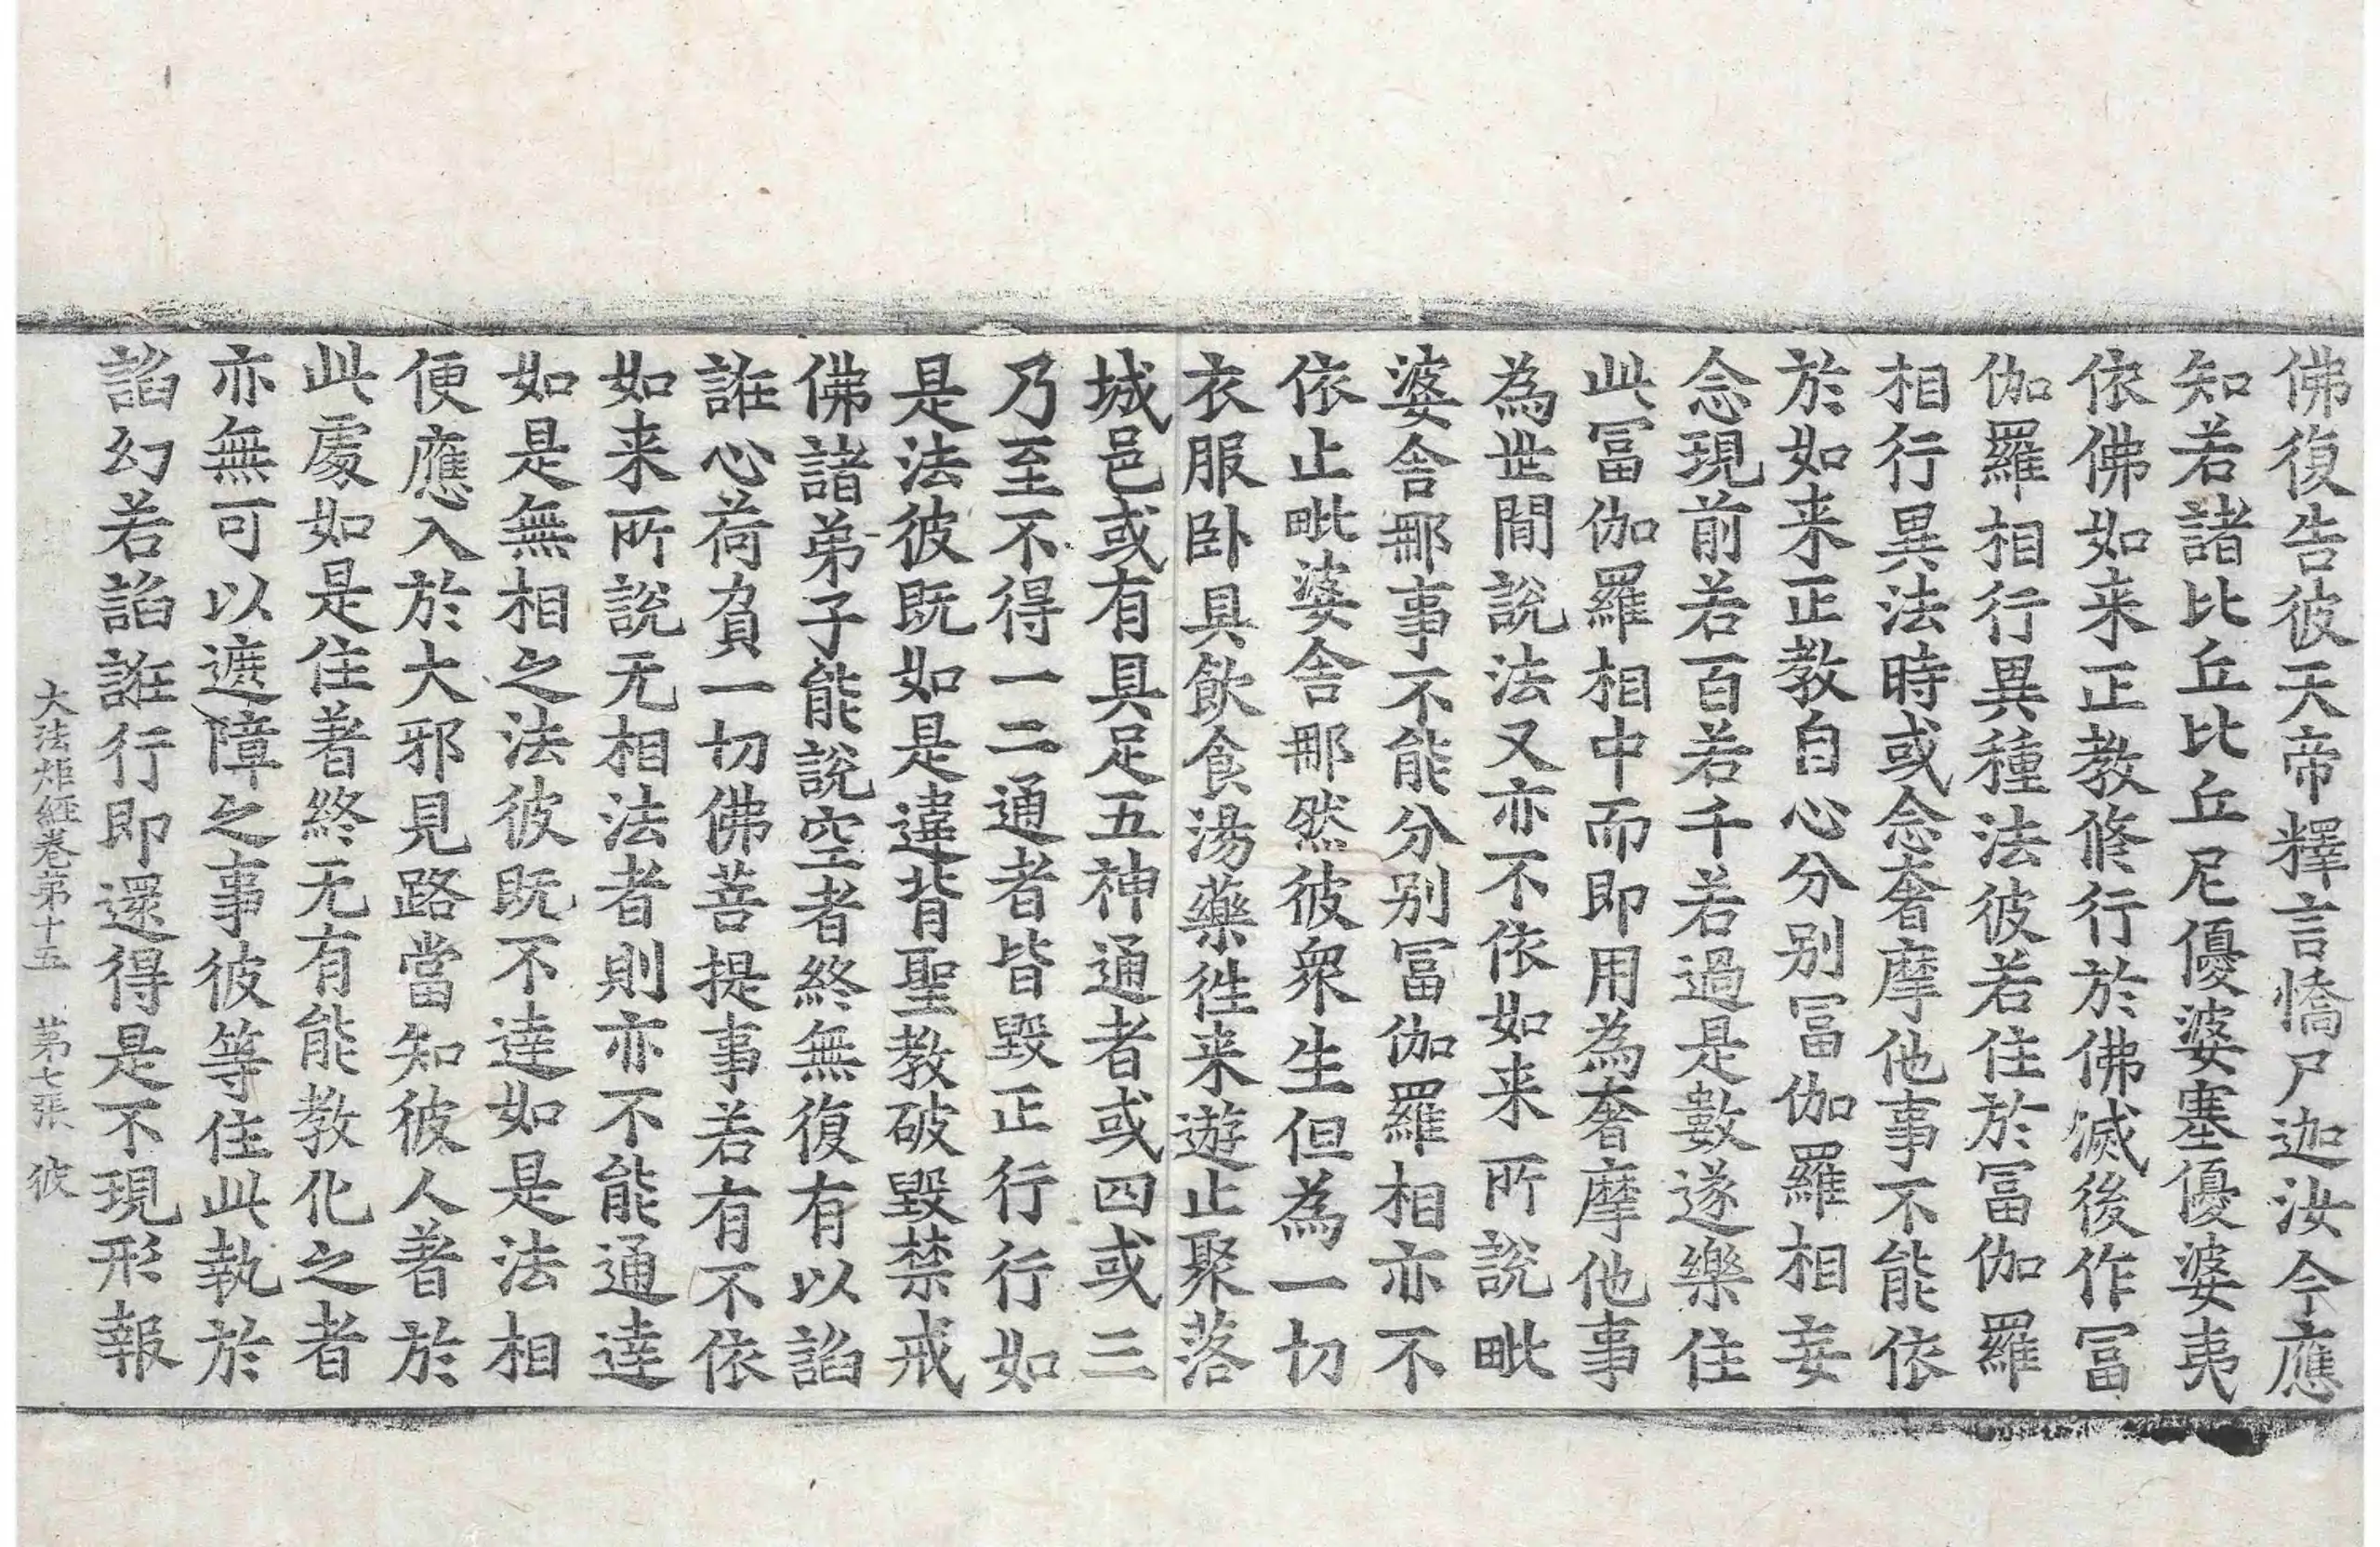 佛復告彼天帝釋言憍尸迦汝今應
知若諸比丘比丘尼優婆塞優婆夷
依佛如来正教修行於佛滅後作冨
伽羅相行異種法彼若住於冨伽羅
相行異法時或念奢摩他事不能依
於如来正教自心分别冨伽羅相妄
念現前若百若千若過是數遂樂住
此冨伽羅相中而即用為奢摩他事
為世間說法又亦不依如来所說毗
婆舍那事不能分别冨伽羅相亦不
依止毗婆舍那然彼衆生但為一切
衣服卧具飲食湯藥徃来遊止聚落
城邑或有具足五神通者或四或三
乃至不得一二通者皆毀正行行如
是法彼既如是違背聖教破毀禁戒
佛諸弟子能說空者終無復有以諂
誑心荷負一切佛菩提事若有不依
如来所說无相法者則亦不能通達
如是無相之法彼既不達如是法相
便應入於大邪見路當知彼人著於
此處如是住著終无有能教化之者
亦無可以遮障之事彼等住此執於
諂幻若諂誑行即還得是不現形報
大法炬經卷第十五　第七張　彼